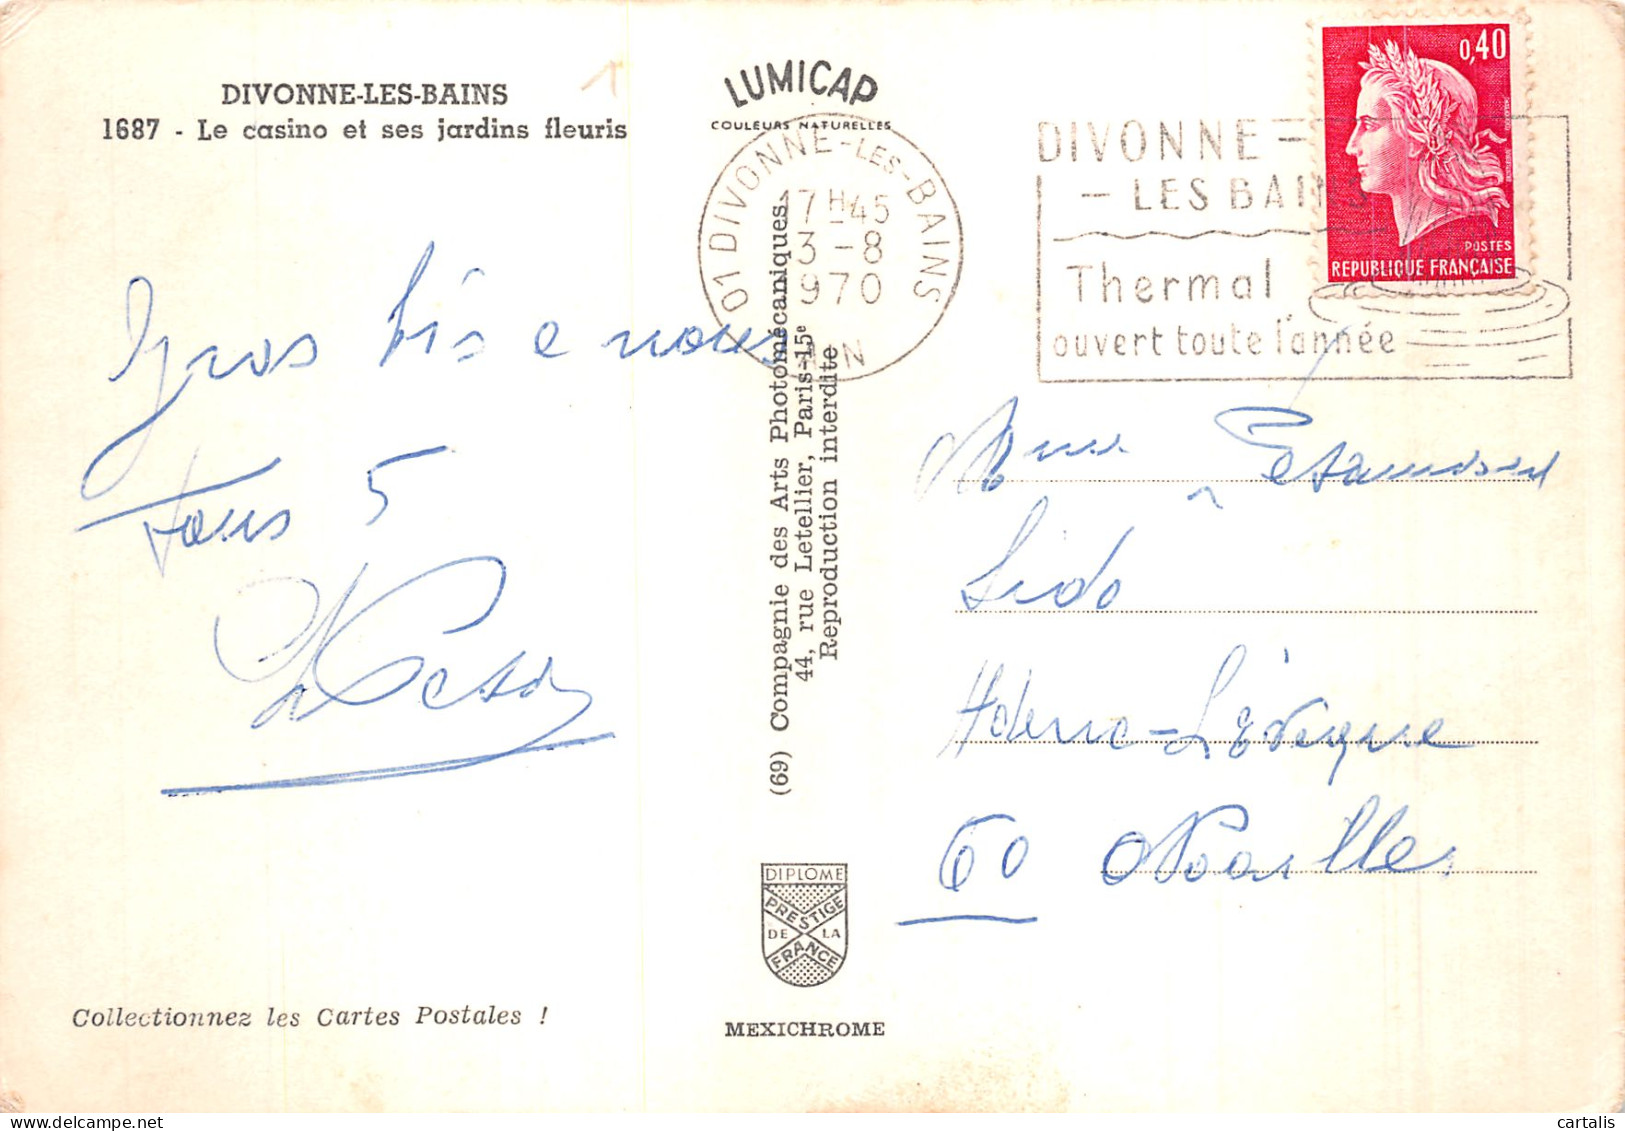 DIVONNE-LES-BAINS
1687 - Le casino et ses jardins fleuris
LUMICAP
COULEURS NATURELLES
01 DIVONNE-LES-BAINS
17 H 45
3 - 8
1970
AIN
DIVONNE-
- LES BAINS
Thermal
ouvert toute l'année
0,40
POSTES
REPUBLIQUE FRANÇAISE
Gros bis e nous
Tous 5
(69) Compagnie des Arts Photomécaniques
44, rue Letellier, Paris-15e
Reproduction interdite
Mme
Lido
L'Évêque
60 Noailles
DIPLOME
PRESTIGE
DE LA
FRANCE
MEXICHROME
Collectionnez les Cartes Postales !
cartalis